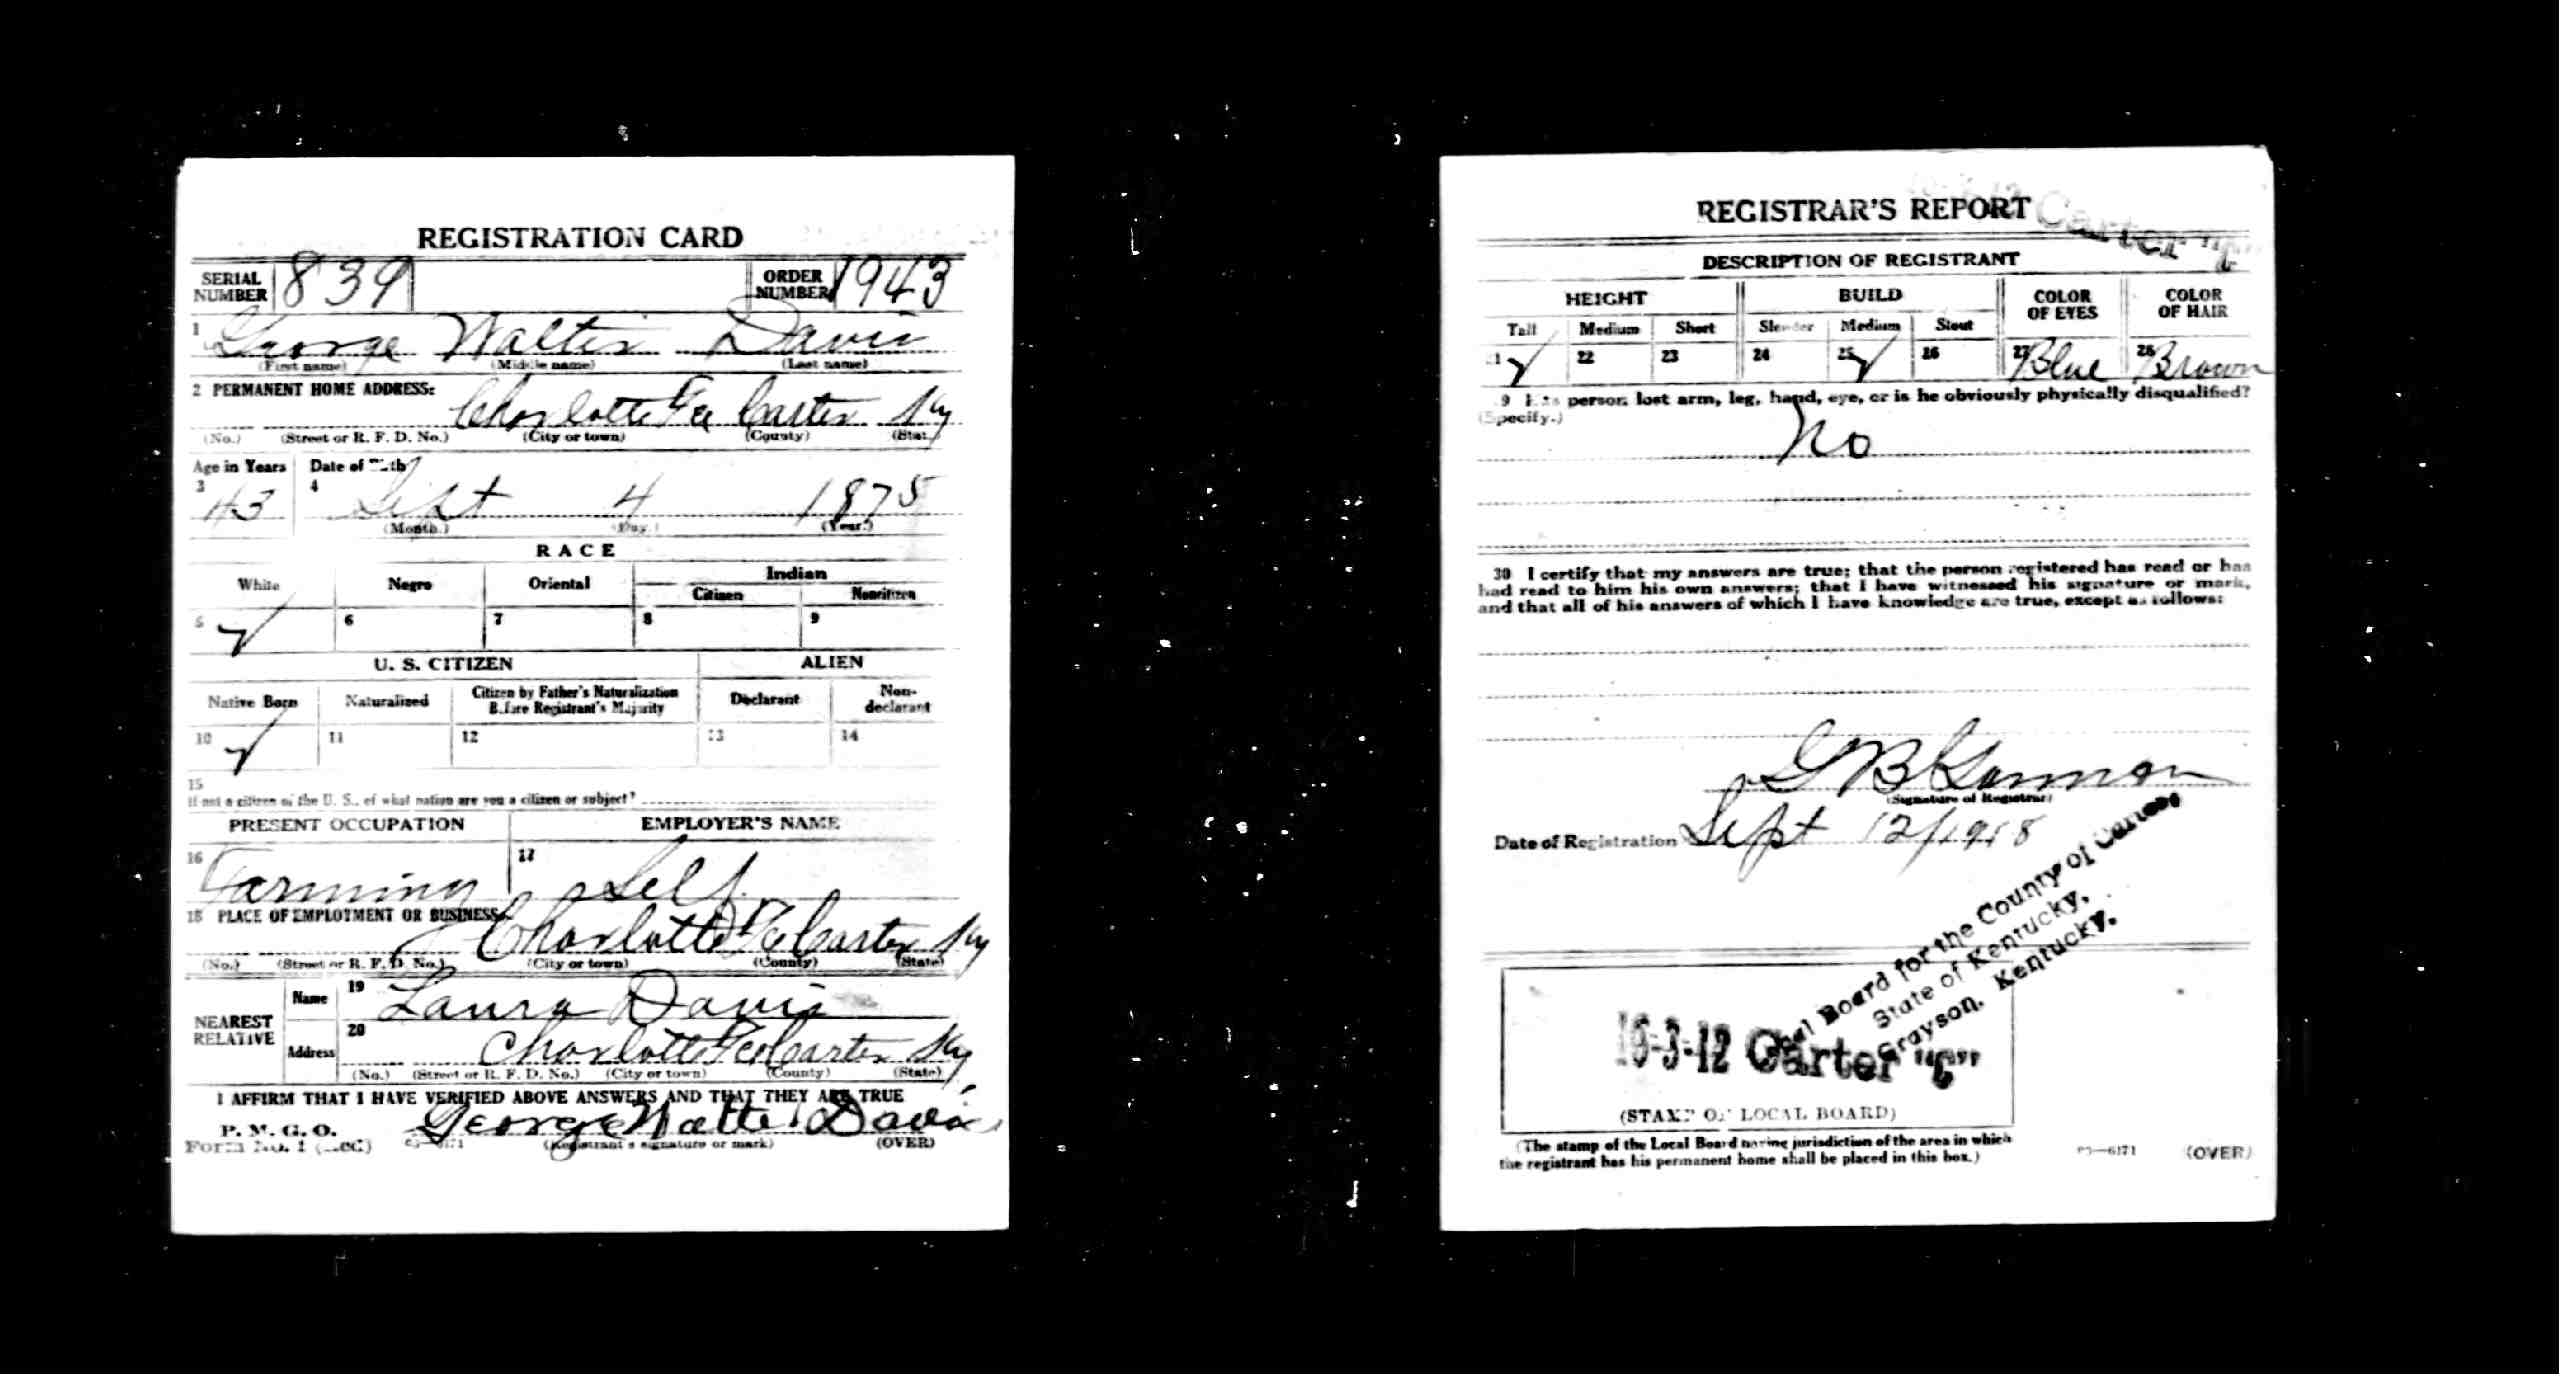 REGISTRATION CARD
SERIAL NUMBER 839 ORDER NUMBER 1943
1 George Walter Davis
(First name) (Middle name) (Last name)
2 PERMANENT HOME ADDRESS:
Charlotte Fee Carter Ky
(No.) (Street or R. F. D. No.) (City or town) (County) (State)
Age in Years Date of Birth
3 43 4 Sept 4 1875
(Month.) (Day.) (Year.)
RACE
White Negro Oriental Indian
Citizen Noncitizen
5 ✓ 6 7 8 9
U. S. CITIZEN ALIEN
Native Born Naturalized Citizen by Father's Naturalization Before Registrant's Majority Declarant Non-declarant
10 ✓ 11 12 13 14
15
If not a citizen of the U. S., of what nation are you a citizen or subject?
PRESENT OCCUPATION EMPLOYER'S NAME
16 Farming 17 Self
18 PLACE OF EMPLOYMENT OR BUSINESS
Charlotte Fee Carter Ky
(No.) (Street or R. F. D. No.) (City or town) (County) (State)
NEAREST RELATIVE
Name 19 Laura Davis
Address 20 Charlotte Fee Carter Ky
(No.) (Street or R. F. D. No.) (City or town) (County) (State)
I AFFIRM THAT I HAVE VERIFIED ABOVE ANSWERS AND THAT THEY ARE TRUE
P. M. G. O.
Form No. 1 (Red) 03—6171
George Walter Davis
(Registrant's signature or mark) (OVER)
REGISTRAR'S REPORT
Carter "C"
DESCRIPTION OF REGISTRANT
HEIGHT BUILD COLOR OF EYES COLOR OF HAIR
Tall Medium Short Slender Medium Stout
21 ✓ 22 23 24 25 ✓ 26 27 Blue 28 Brown
29 Has person lost arm, leg, hand, eye, or is he obviously physically disqualified?
(Specify.)
No
30 I certify that my answers are true; that the person registered has read or has
had read to him his own answers; that I have witnessed his signature or mark,
and that all of his answers of which I have knowledge are true, except as follows:
(Signature of Registrar)
Date of Registration Sept 12/1918
Local Board for the County of Carter,
State of Kentucky,
Grayson, Kentucky.
16-3-12 Carter "C"
(STAMP OF LOCAL BOARD)
(The stamp of the Local Board having jurisdiction of the area in which
the registrant has his permanent home shall be placed in this box.)
03—6171 (OVER)